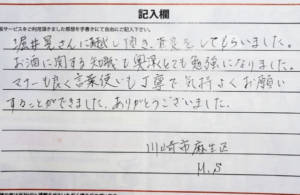 記入欄
サービスをご利用頂きました感想を手書きにて自由にご記入下さい。
堀井晃さんに来て頂き、査定をしてもらいました。
お酒に関する知識も豊潤とても勉強になりました。
マナーも良く言葉使いも丁寧で気持よくお願い
することができました。ありがとうございました。
川崎市麻生区
M.S